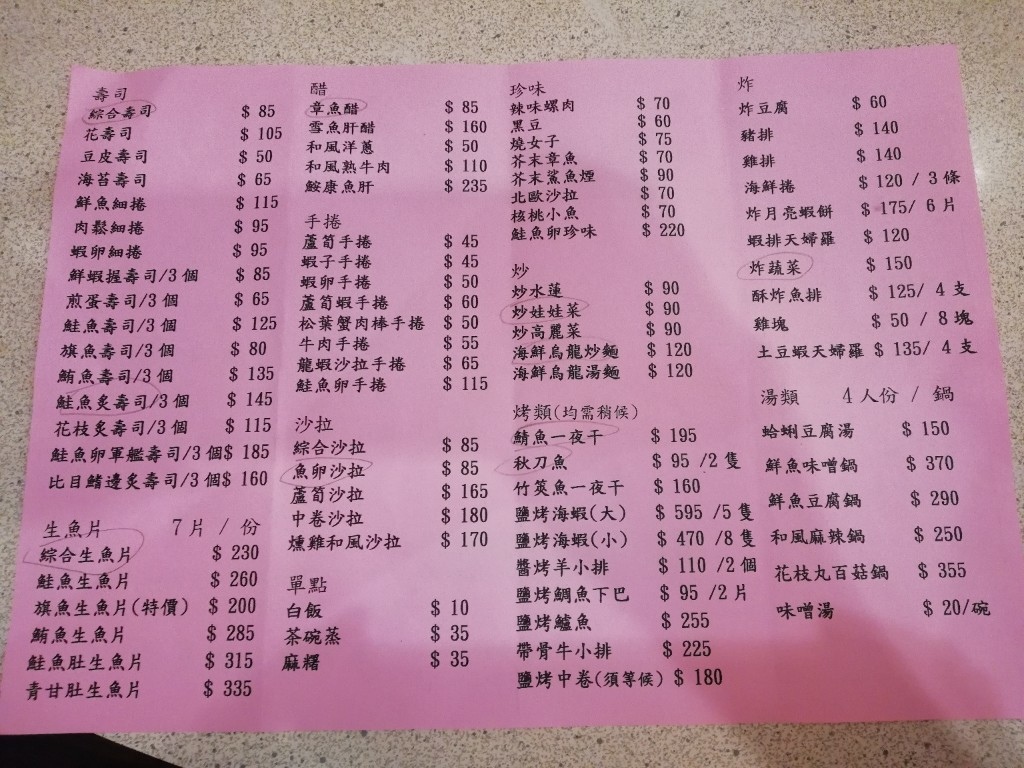 壽司
綜合壽司 $ 85
花壽司 $ 105
豆皮壽司 $ 50
海苔壽司 $ 65
鮮魚細捲 $ 115
肉鬆細捲 $ 95
蝦卵細捲 $ 95
鮮蝦握壽司/3 個 $ 85
煎蛋壽司/3 個 $ 65
鮭魚壽司/3 個 $ 125
旗魚壽司/3 個 $ 80
鮪魚壽司/3 個 $ 135
鮭魚炙壽司/3 個 $ 145
花枝炙壽司/3 個 $ 115
鮭魚卵軍艦壽司/3 個 $ 185
比目鰭邊炙壽司/3 個 $ 160
生魚片 7 片 / 份
綜合生魚片 $ 230
鮭魚生魚片 $ 260
旗魚生魚片(特價) $ 200
鮪魚生魚片 $ 285
鮭魚肚生魚片 $ 315
青甘肚生魚片 $ 335
醋
章魚醋 $ 85
雪魚肝醋 $ 160
和風洋蔥 $ 50
和風熟牛肉 $ 110
鮟康魚肝 $ 235
手捲
蘆筍手捲 $ 45
蝦子手捲 $ 45
蝦卵手捲 $ 50
蘆筍蝦手捲 $ 60
松葉蟹肉棒手捲 $ 50
牛肉手捲 $ 55
龍蝦沙拉手捲 $ 65
鮭魚卵手捲 $ 115
沙拉
綜合沙拉 $ 85
魚卵沙拉 $ 85
蘆筍沙拉 $ 165
中卷沙拉 $ 180
燻雞和風沙拉 $ 170
單點
白飯 $ 10
茶碗蒸 $ 35
麻糬 $ 35
珍味
辣味螺肉 $ 70
黑豆 $ 60
燒女子 $ 75
芥末章魚 $ 70
芥末鯊魚煙 $ 90
北歐沙拉 $ 70
核桃小魚 $ 70
鮭魚卵珍味 $ 220
炒
炒水蓮 $ 90
炒娃娃菜 $ 90
炒高麗菜 $ 90
海鮮烏龍炒麵 $ 120
海鮮烏龍湯麵 $ 120
烤類(均需稍候)
鯖魚一夜干 $ 195
秋刀魚 $ 95 /2 隻
竹筴魚一夜干 $ 160
鹽烤海蝦(大) $ 595 /5 隻
鹽烤海蝦(小) $ 470 /8 隻
醬烤羊小排 $ 110 /2 個
鹽烤鯛魚下巴 $ 95 /2 片
鹽烤鱸魚 $ 255
帶骨牛小排 $ 225
鹽烤中卷(須等候) $ 180
炸
炸豆腐 $ 60
豬排 $ 140
雞排 $ 140
海鮮捲 $ 120 / 3 條
炸月亮蝦餅 $ 175/ 6 片
蝦排天婦羅 $ 120
炸蔬菜 $ 150
酥炸魚排 $ 125/ 4 支
雞塊 $ 50 / 8 塊
土豆蝦天婦羅 $ 135/ 4 支
湯類 4 人份 / 鍋
蛤蜊豆腐湯 $ 150
鮮魚味噌鍋 $ 370
鮮魚豆腐鍋 $ 290
和風麻辣鍋 $ 250
花枝丸百菇鍋 $ 355
味噌湯 $ 20/碗